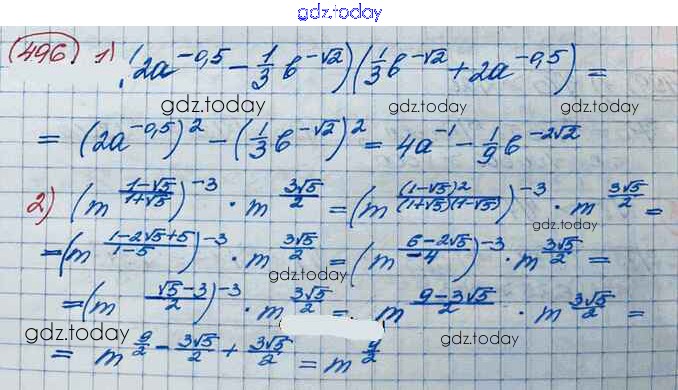 gdz.today
496 1) (2a^{-0,5} - \frac{1}{3} b^{-√2}) (\frac{1}{3} b^{-√2} + 2a^{-0,5}) =
gdz.today gdz.today gdz.today
= (2a^{-0,5})^2 - (\frac{1}{3} b^{-√2})^2 = 4a^{-1} - \frac{1}{9} b^{-2√2}
2) (m^{\frac{1-√5}{1+√5}})^{-3} · m^{\frac{3√5}{2}} = (m^{\frac{(1-√5)^2}{(1+√5)(1-√5)}})^{-3} · m^{\frac{3√5}{2}} =
gdz.today
= (m^{\frac{1-2√5+5}{1-5}})^{-3} · m^{\frac{3√5}{2}} = (m^{\frac{6-2√5}{-4}})^{-3} · m^{\frac{3√5}{2}} =
gdz.today
= (m^{\frac{√5-3}{2}})^{-3} · m^{\frac{3√5}{2}} = m^{\frac{9-3√5}{2}} · m^{\frac{3√5}{2}} =
gdz.today gdz.today
= m^{\frac{9}{2} - \frac{3√5}{2} + \frac{3√5}{2}} = m^{\frac{9}{2}}
gdz.today